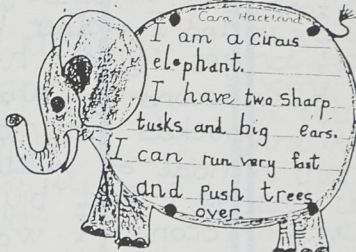 Cara Hackland
I am a circus
elephant.
I have two sharp
tusks and big ears.
I can run very fast
and push trees
over.